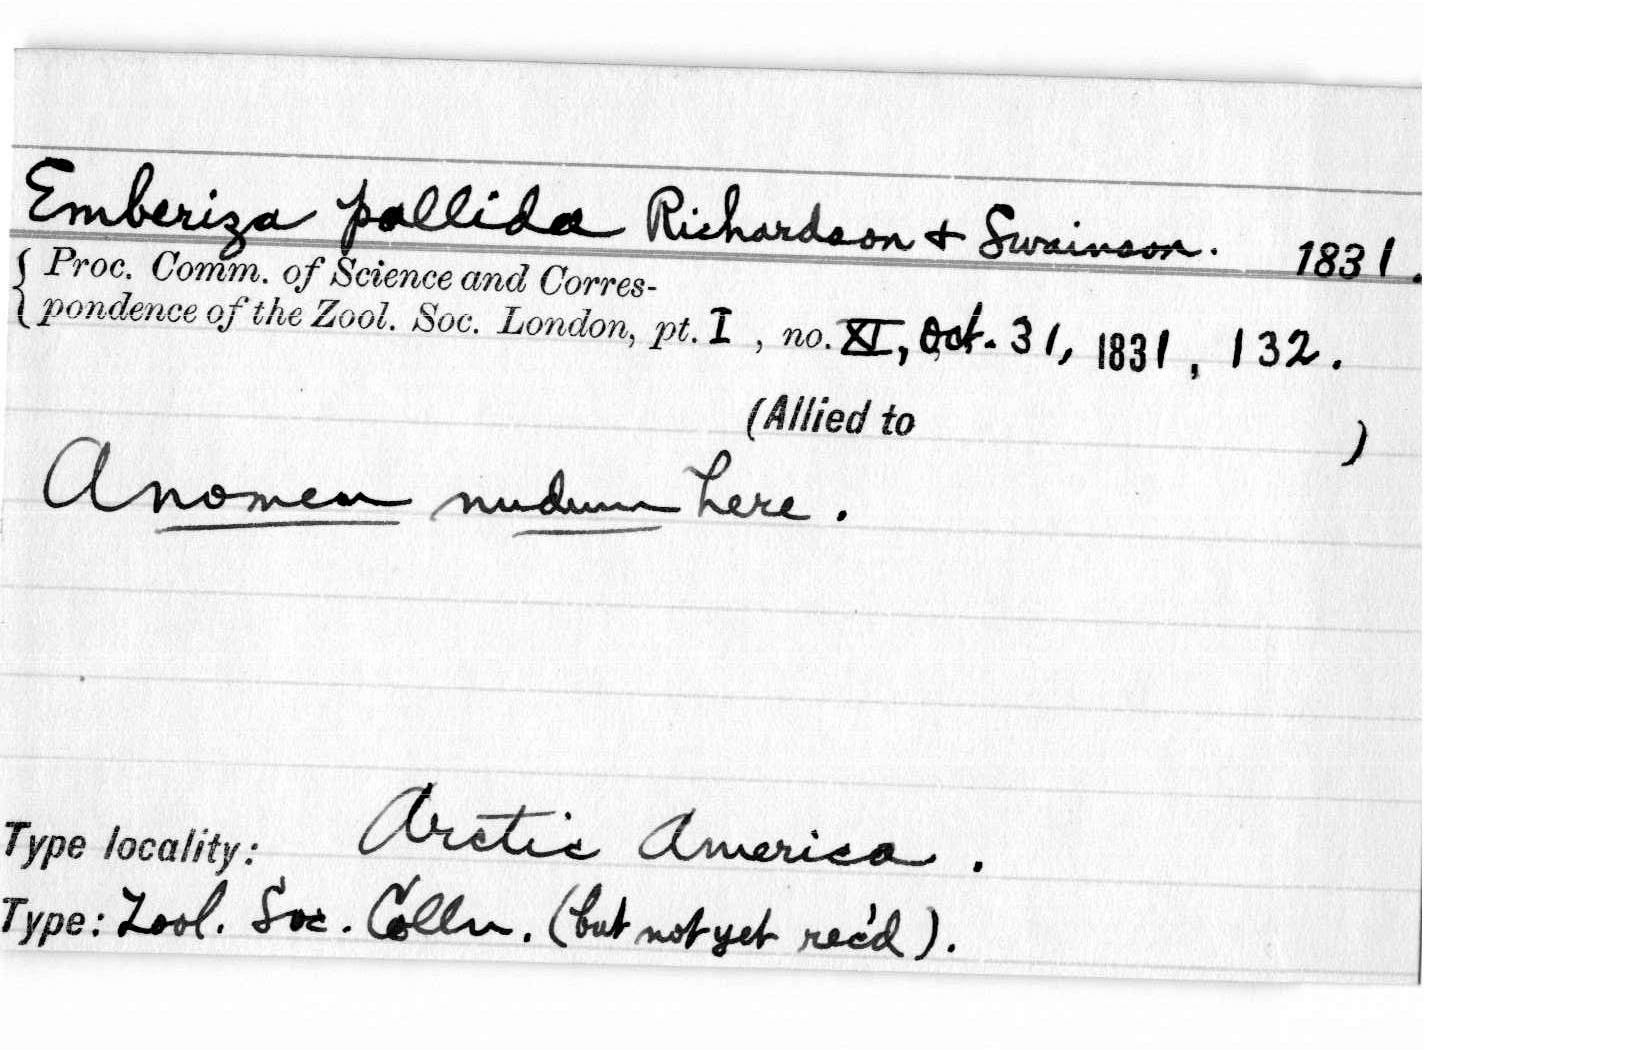 Emberiza pallida Richardson + Swainson. 1831.
{ Proc. Comm. of Science and Corres-
pondence of the Zool. Soc. London, pt. I , no. XI, Oct. 31, 1831, 132.
(Allied to )
A nomen nudum here.
Type locality: Arctic America.
Type: Zool. Soc. Colln. (but not yet rec'd).